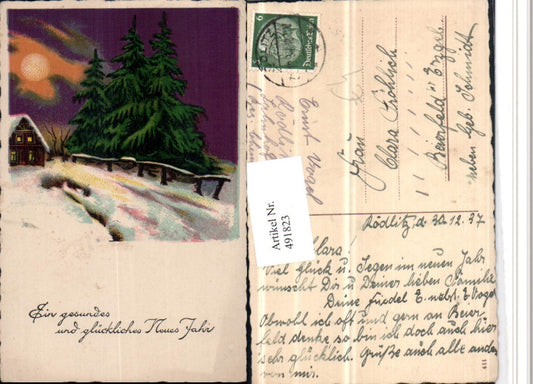 Ein gesundes
und glückliches Neues Jahr
6
Deutsches Reich
Frau
Clara Fröhlich
Beierfeld i/ Erzgeb.
neben Geb. Schmidt
Ernst Vogel
Rödlitz
Artikel Nr.
491823
Rödlitz, d. 30.12.37
Clara!
Viel Glück u. Segen im neuen Jahr
wünscht Dir u. Deiner lieben Familie
Deine Friedel E. nebst E. Vogel
Obwohl ich oft und gern an Beier-
feld denke so bin ich doch auch hier
sehr glücklich. Grüße auch alle andern
von mir.